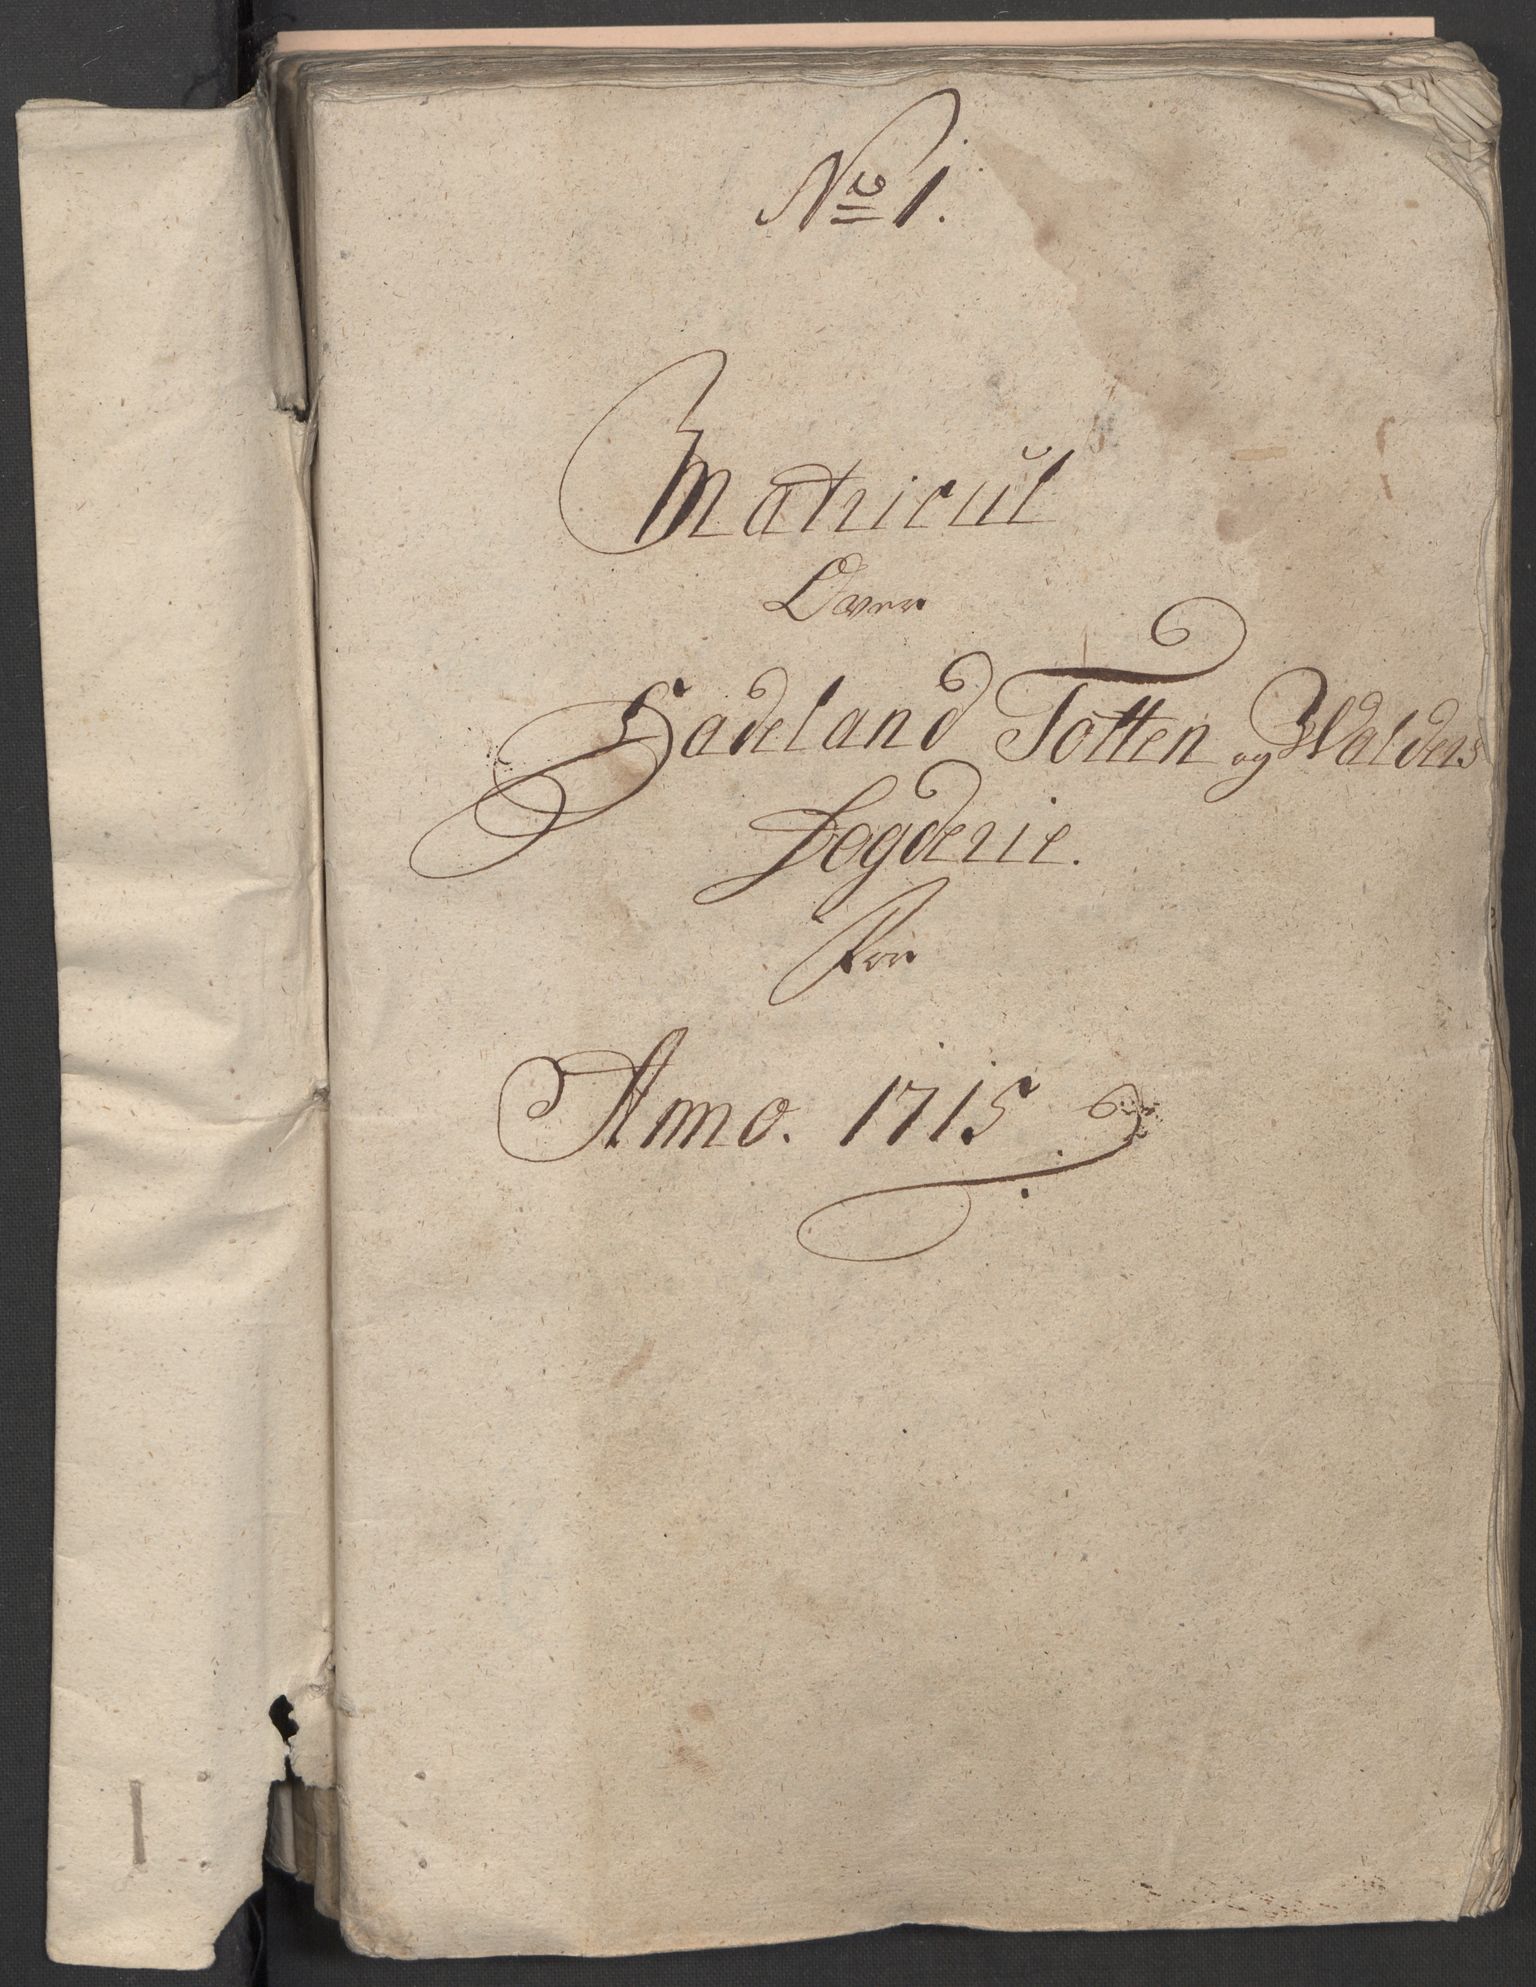 No 1.
Matricul
Over
Hadeland Totten og Walders
Fogderie.
For
Anno. 1715